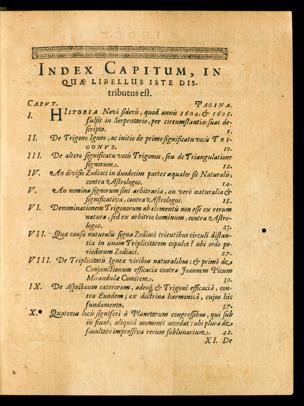 INDEX CAPITUM, IN
QUÆ LIBELLUS ISTE DIS-
tributus est.
CAPUT. PAGINA.
I. HISTORIA Novi sideris, quod annis 1604. & 1605.
fulsit in Serpentario, per circumstantias suas de-
scripta. 1.
II. De Trigono Igneo, ac initio de primo significatu vocis TRI-
GONUS. 10.
III. De altero significatu vocis Trigonus, seu de Triangulatione
signorum. 12.
IV. An divisio Zodiaci in duodecim partes æquales sit Naturalis,
contra Astrologos. 14.
V. An nomina signorum sint arbitraria, an verò naturalia &
significativa, contra Astrologos. 18.
VI. Denominationem Trigonorum ab elementis non esse ex rerum
natura, sed ex arbitrio hominum, contra Astro-
logos. 23.
VII. Quæ causa naturalis signa Zodiaci trientibus circuli distan-
tia in unam Triplicitatem copulet? ubi orde pe-
riodorum Zodiaci. 27.
VIII. De Triplicitatis Igneæ viribus naturalibus; & primò de
Conjunctionum efficacia contra Joannem Picum
Mirandulæ Comitem. 30.
IX. De Aspectuum cæterorum, adeoq́; & Trigoni efficaciâ, con-
tra Eundem; ex doctrina harmonicâ, cujus hîc
fundamenta. 37.
X. Quatenus locis signiferi à Planetarum congressibus, qui sub
iis fiunt, aliquid momenti accedat: ubi plura de
facultate impressiva rerum sublunarium. 42.
XI. De